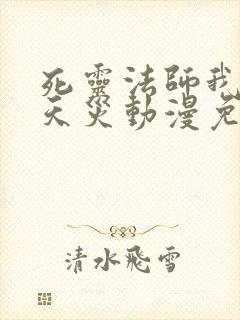 死靈法師我
天災動漫免
清水飛雪